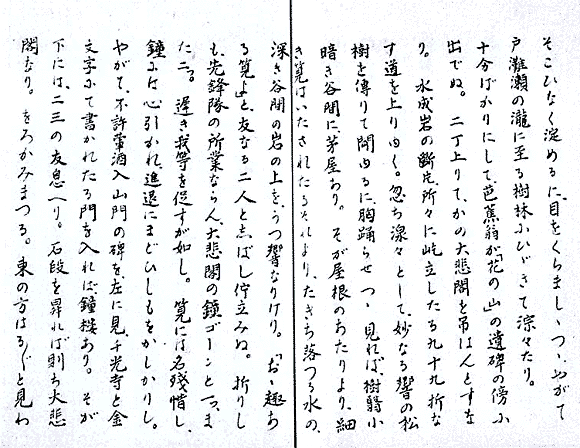 そこひなく淀めるに、目をくらましつつ、やがて
戸灘瀬の瀧に至る樹林にひゞきて淙々たり。
十分ばかりにして、芭蕉翁が「花の山」の遺碑の傍に
出でぬ。二丁上りて、かの大悲閣を吊はんとすな
り。水成岩の断片、所々に屹立したる九十九折な
す道を上りゆく。忽ち淙々として、妙なる響の松
樹を傳りて聞ゆるに、胸踊らせつゝ見れば、樹翳小
暗き谷間に、茅屋あり。そが屋根のあたりより、細
き筧はいたされたるそれより、たぎち落つる水の、
深き谷間の岩の上を、うつ響なりけり。「おゝ趣あ
る筧よ」と、友なる二人と志ばし佇立みぬ。折りし
も、先鋒隊の所業ならん、大悲閣の鐘ゴーンと一つ、ま
た二つ。遅き我等を促すが如し。筧には名残惜し、
鐘には心引かれ、進退にまどひしもをかしかりし。
やがて、不許葷酒入山門の碑を、左に見、千光寺と金
文字にて書かれたる門を入れば、鐘楼あり。そが
下には、二三の友息へり。石段を昇れば則ち大悲
閣なり。をろかみまつる。東の方はるゞと見わ